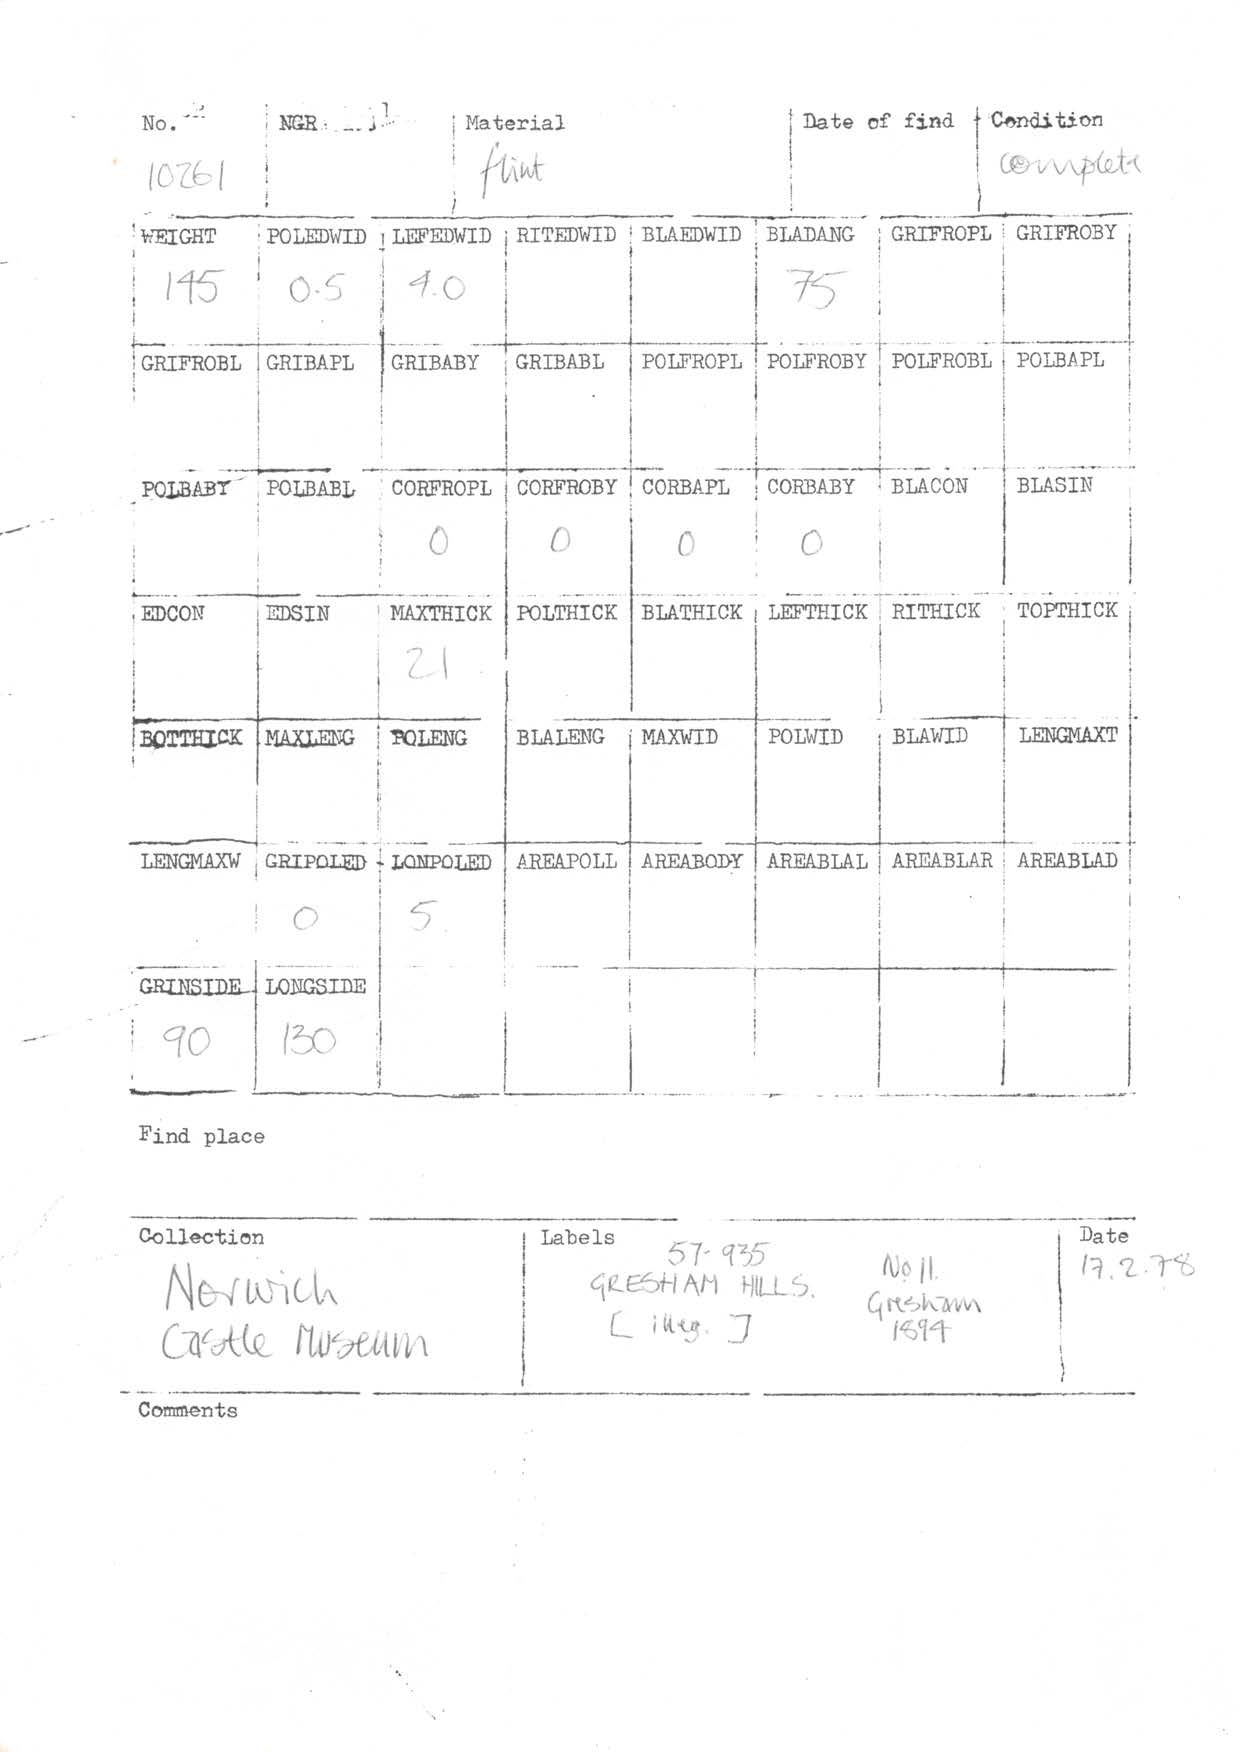 No. NGR Material Date of find Condition
10261 flint complete
WEIGHT POLEDWID LEFEDWID RITEDWID BLAEDWID BLADANG GRIFROPL GRIFROBY
145 0.5 4.0 75
GRIFROBL GRIBAPL GRIBABY GRIBABL POLFROPL POLFROBY POLFROBL POLBAPL
POLBABY POLBABL CORFROPL CORFROBY CORBAPL CORBABY BLACON BLASIN
0 0 0 0
EDCON EDSIN MAXTHICK POLTHICK BLATHICK LEFTHICK RITHICK TOPTHICK
21
BOTTHICK MAXLENG POLENG BLALENG MAXWID POLWID BLAWID LENGMAXT
LENGMAXW GRIPOLED LONPOLED AREAPOLL AREABODY AREABLAL AREABLAR AREABLAD
0 5
GRINSIDE LONGSIDE
90 130
Find place
Collection Labels Date
Norwich
Castle Museum
57-935
GRESHAM HILLS.
[illeg.]
No 11.
Gresham
1894
17.2.78
Comments